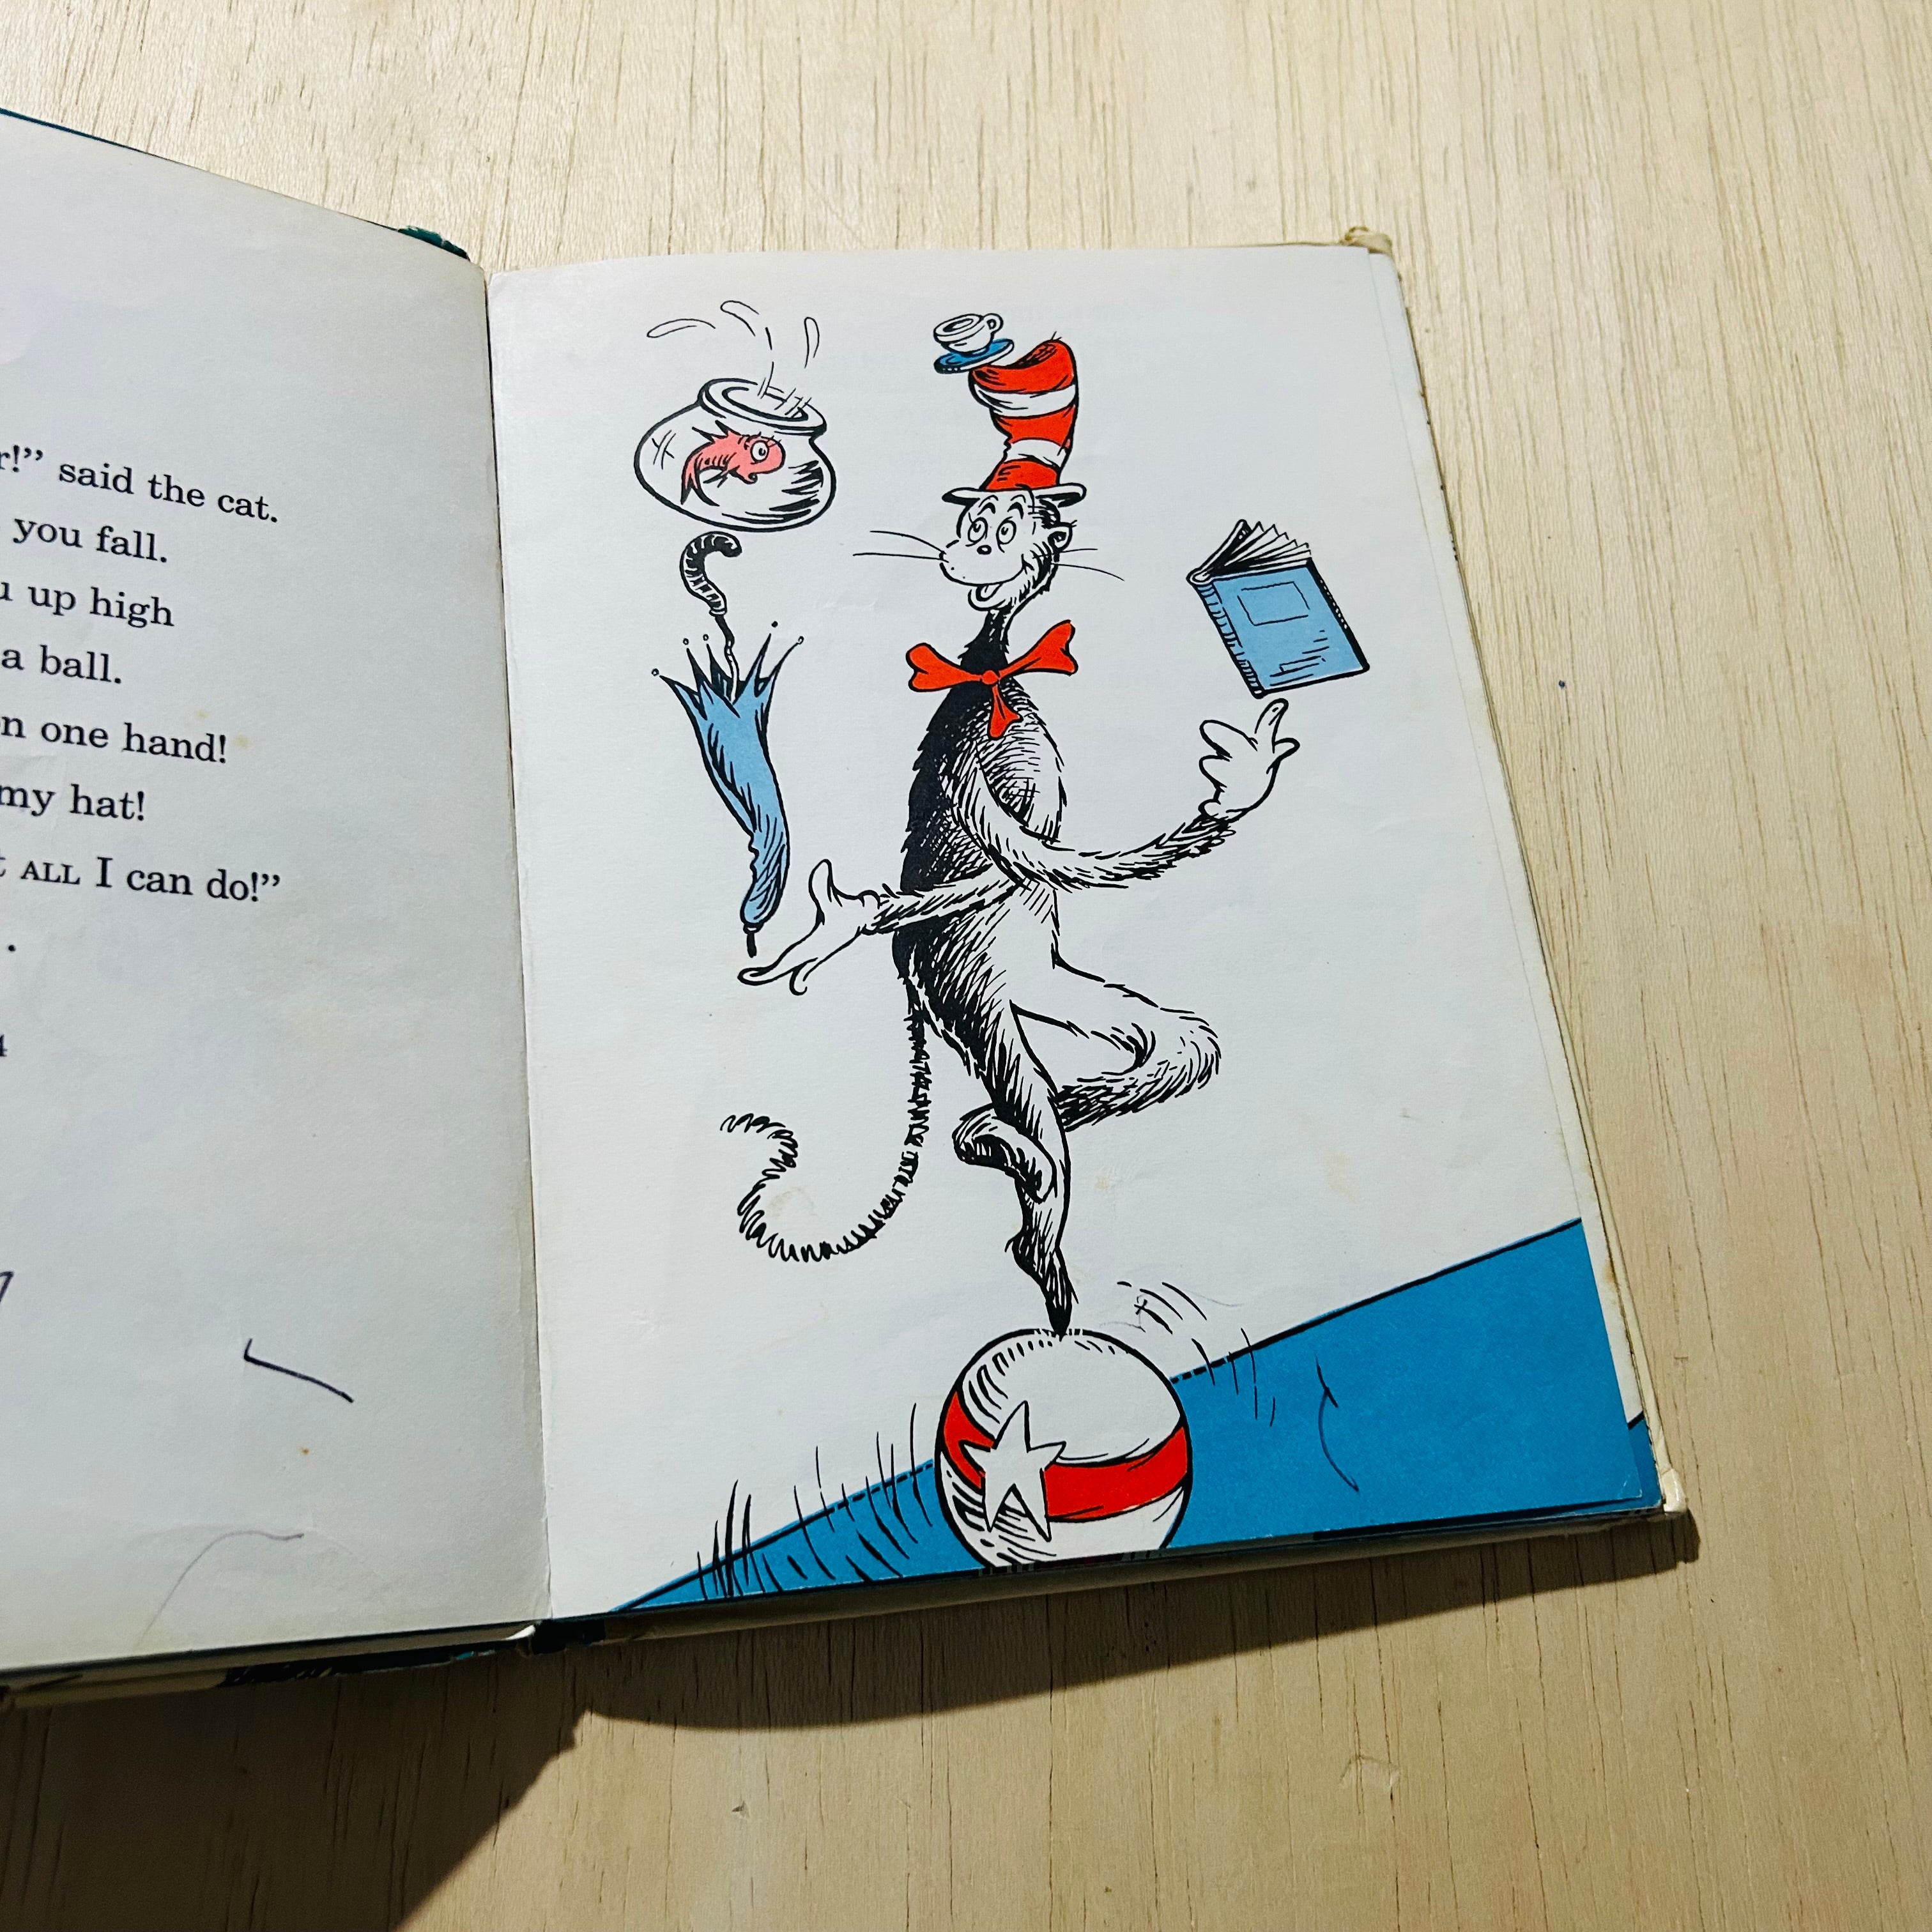 said the cat.
you fall.
up high
a ball.
one hand!
my hat!
ALL I can do!”
.